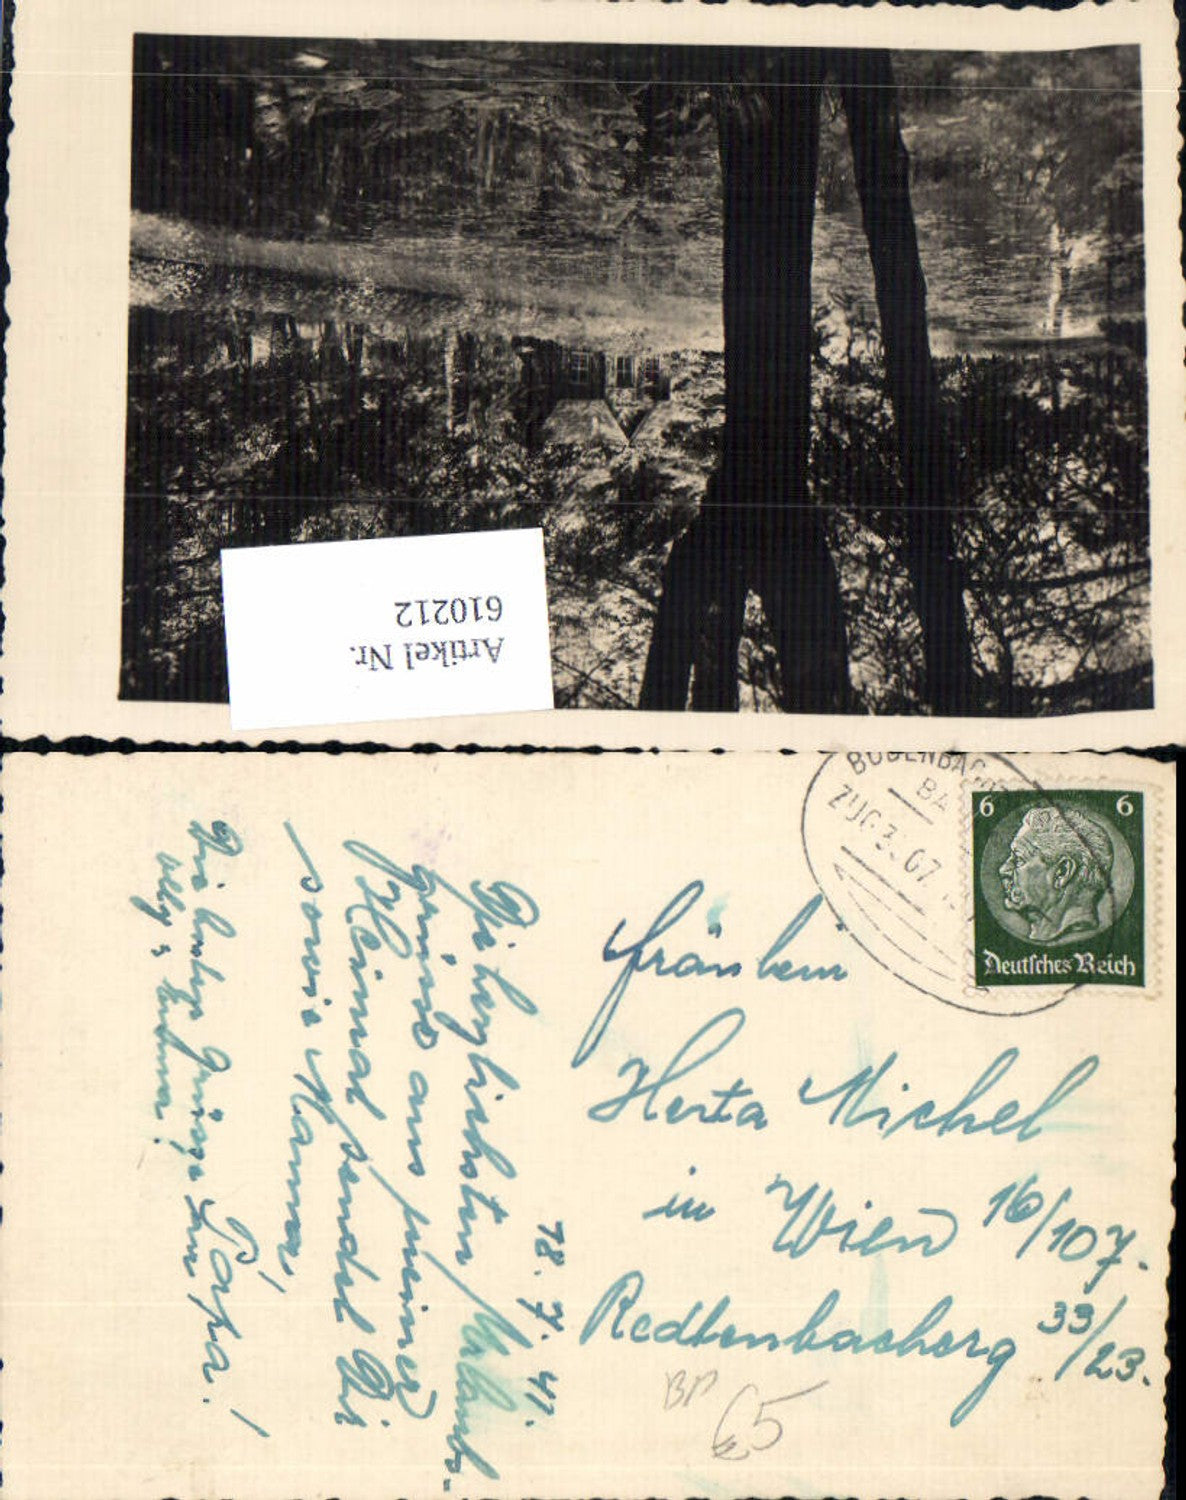 Artikel Nr.
610212
BODENBAC
BA
ZUG 3. 07
6 6
Deutsches Reich
18. 7. 41.
Die herzlichsten Urlaubs-
Grüsse aus meiner
Heimat sendet Dir
sowie Mama,
Papa!
Die besten Grüsse
Fräulein
Herta Michel
in Wien 16/107.
Redtenbacherg 33/23.
BP
65